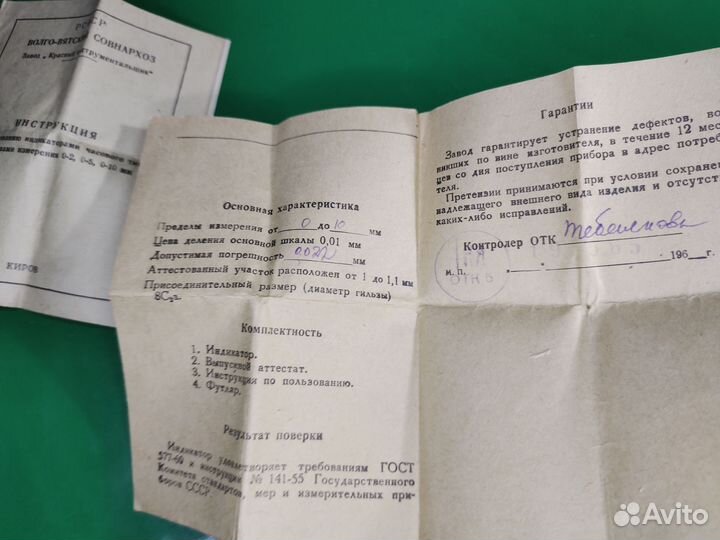 РСФСР
ВОЛГО-ВЯТСКИЙ СОВНАРХОЗ
Завод „Красный инструментальщик"
ИНСТРУКЦИЯ
индикаторами часового
измерения 0-2, 0-5, 0-10 мм
КИРОВ
Основная характеристика
Пределы измерения от 0 до 10 мм
Цена деления основной шкалы 0,01 мм
Допустимая погрешность 0,022 мм
Аттестованный участок расположен от 1 до 1,1 мм
Присоединительный размер (диаметр гильзы)
8С₂ₐ.
Комплектность
1. Индикатор.
2. Выпускной аттестат.
3. Инструкция по пользованию.
4. Футляр.
Результат поверки
Индикатор удовлетворяет требованиям ГОСТ
577-60 и инструкции № 141-55 Государственного
Комитета стандартов, мер и измерительных при-
боров СССР.
Гарантии
Завод гарантирует устранение дефектов, воз
никших по вине изготовителя, в течение 12 меся
цев со дня поступления прибора в адрес потреби
теля.
Претензии принимаются при условии сохранен
надлежащего внешнего вида изделия и отсутст
каких-либо исправлений.
Контролер ОТК
м. п. 196 г.
ОТК
Avito